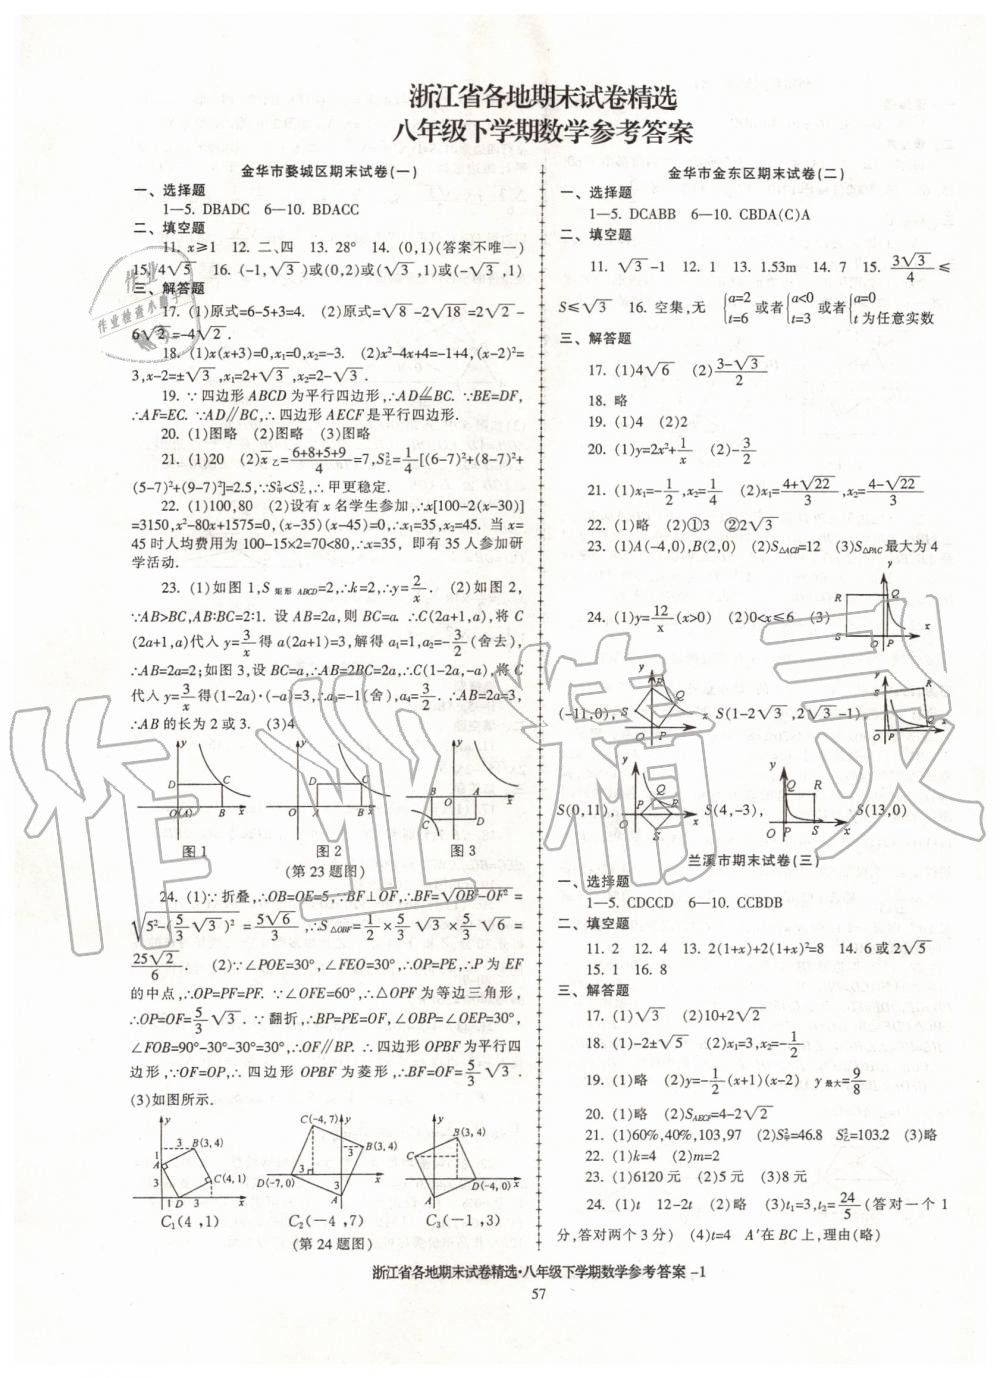 浙江省各地期末试卷精选
八年级下学期数学参考答案
金华市婺城区期末试卷(一)
一、选择题
1—5. DBADC 6—10. BDACC
二、填空题
11. x≥1 12. 二、四 13. 28° 14. (0,1)(答案不唯一)
15. 4√5 16. (-1,√3)或(0,2)或(√3,1)或(-√3,1)
三、解答题
17. (1)原式=6-5+3=4. (2)原式=√8-2√18=2√2-
6√2=-4√2.
18. (1)x(x+3)=0,x₁=0,x₂=-3. (2)x²-4x+4=-1+4,(x-2)²=
3,x-2=±√3,x₁=2+√3,x₂=2-√3.
19. ∵四边形ABCD为平行四边形,∴AD⫽BC. ∵BE=DF,
∴AF=EC. ∵AD∥BC,∴四边形AECF是平行四边形.
20. (1)图略 (2)图略 (3)图略
21. (1)20 (2)x̄乙=(6+8+5+9)/4=7,S²乙=1/4[(6-7)²+(8-7)²+
(5-7)²+(9-7)²]=2.5,∵S²甲<S²乙,∴甲更稳定.
22. (1)100,80 (2)设有x名学生参加,∴x[100-2(x-30)]
=3150,x²-80x+1575=0,(x-35)(x-45)=0,∴x₁=35,x₂=45. 当x=
45时人均费用为100-15×2=70<80,∴x=35, 即有35人参加研
学活动.
23. (1)如图1,S矩形ABCD=2,∴k=2,∴y=2/x. (2)如图2,
∵AB>BC,AB:BC=2:1. 设AB=2a,则BC=a. ∴C(2a+1,a),将C
(2a+1,a)代入y=3/x得a(2a+1)=3,解得a₁=1,a₂=-3/2(舍去),
∴AB=2a=2;如图3,设BC=a,∴AB=2BC=2a,∴C(1-2a,-a),将C
代入y=3/x得(1-2a)·(-a)=3,∴a₃=-1(舍),a₄=3/2. ∴AB=2a=3,
∴AB的长为2或3. (3)4
y D C O (A) B x
y D C O A B x
y B O A x C D
图1 图2 图3
(第23题图)
24. (1)∵折叠,∴OB=OE=5,∵BF⊥OF,∴BF=√(OB²-OF²)=
√(5²-(5/3√3)²)=5√6/3,∴S△OBF=1/2×5/3√3×5/3√6=
25√2/6. (2)∵∠POE=30°,∠FEO=30°,∴OP=PE,∴P为EF
的中点,∴OP=PF=PF. ∵∠OFE=60°,∴△OPF为等边三角形,
∴OP=OF=5/3√3. ∵翻折,∴BP=PE=OF,∠OBP=∠OEP=30°,
∠FOB=90°-30°-30°=30°,∴OF∥BP. ∴四边形OPBF为平行四
边形,∵OF=OP,∴四边形OPBF为菱形,∴BF=OF=5/3√3.
(3)如图所示.
y 3 B(3,4) 1 A 3 3 C(4,1) 3 1 D x
C(-4,7) y B(3,4) 3 3 D(-7,0) A x
y B(3,4) C 3 D(-4,0) A x
C₁(4,1) C₂(-4,7) C₃(-1,3)
(第24题图)
金华市金东区期末试卷(二)
一、选择题
1—5. DCABB 6—10. CBDA(C)A
二、填空题
11. √3-1 12. 1 13. 1.53m 14. 7 15. 3√3/4≤
S≤√3 16. 空集,无 {a=2 t=6 或者{a<0 t=3 或者{a=0 t为任意实数
三、解答题
17. (1)4√6 (2)(3-√3)/2
18. 略
19. (1)4 (2)2
20. (1)y=2x²+1/x (2)-3/2
21. (1)x₁=-1/2,x₂=1/4 (2)x₁=(4+√22)/3,x₂=(4-√22)/3
22. (1)略 (2)①3 ②2√3
23. (1)A(-4,0),B(2,0) (2)S△ACB=12 (3)S△PAC最大为4
24. (1)y=12/x(x>0) (2)0<x≤6 (3)
y R Q S O P x
(-11,0), y R Q S O P x S(1-2√3,2√3-1)
S(0,11), S(4,-3), S(13,0)
兰溪市期末试卷(三)
一、选择题
1—5. CDCCD 6—10. CCBDB
二、填空题
11. 2 12. 4 13. 2(1+x)+2(1+x)²=8 14. 6或2√5
15. 1 16. 8
三、解答题
17. (1)√3 (2)10+2√2
18. (1)-2±√5 (2)x₁=3,x₂=-1/2
19. (1)略 (2)y=-1/2(x+1)(x-2) y最大=9/8
20. (1)略 (2)S AECF=4-2√2
21. (1)60%,40%,103,97 (2)S²甲=46.8 S²乙=103.2 (3)略
22. (1)k=4 (2)m=2
23. (1)6120元 (2)5元 (3)8元
24. (1)t 12-2t (2)略 (3)t₁=3,t₂=24/5(答对一个1
分,答对两个3分) (4)t=4 A′在BC上,理由(略)
浙江省各地期末试卷精选·八年级下学期数学参考答案 -1
57
作业精灵
作业
作业检查小助手